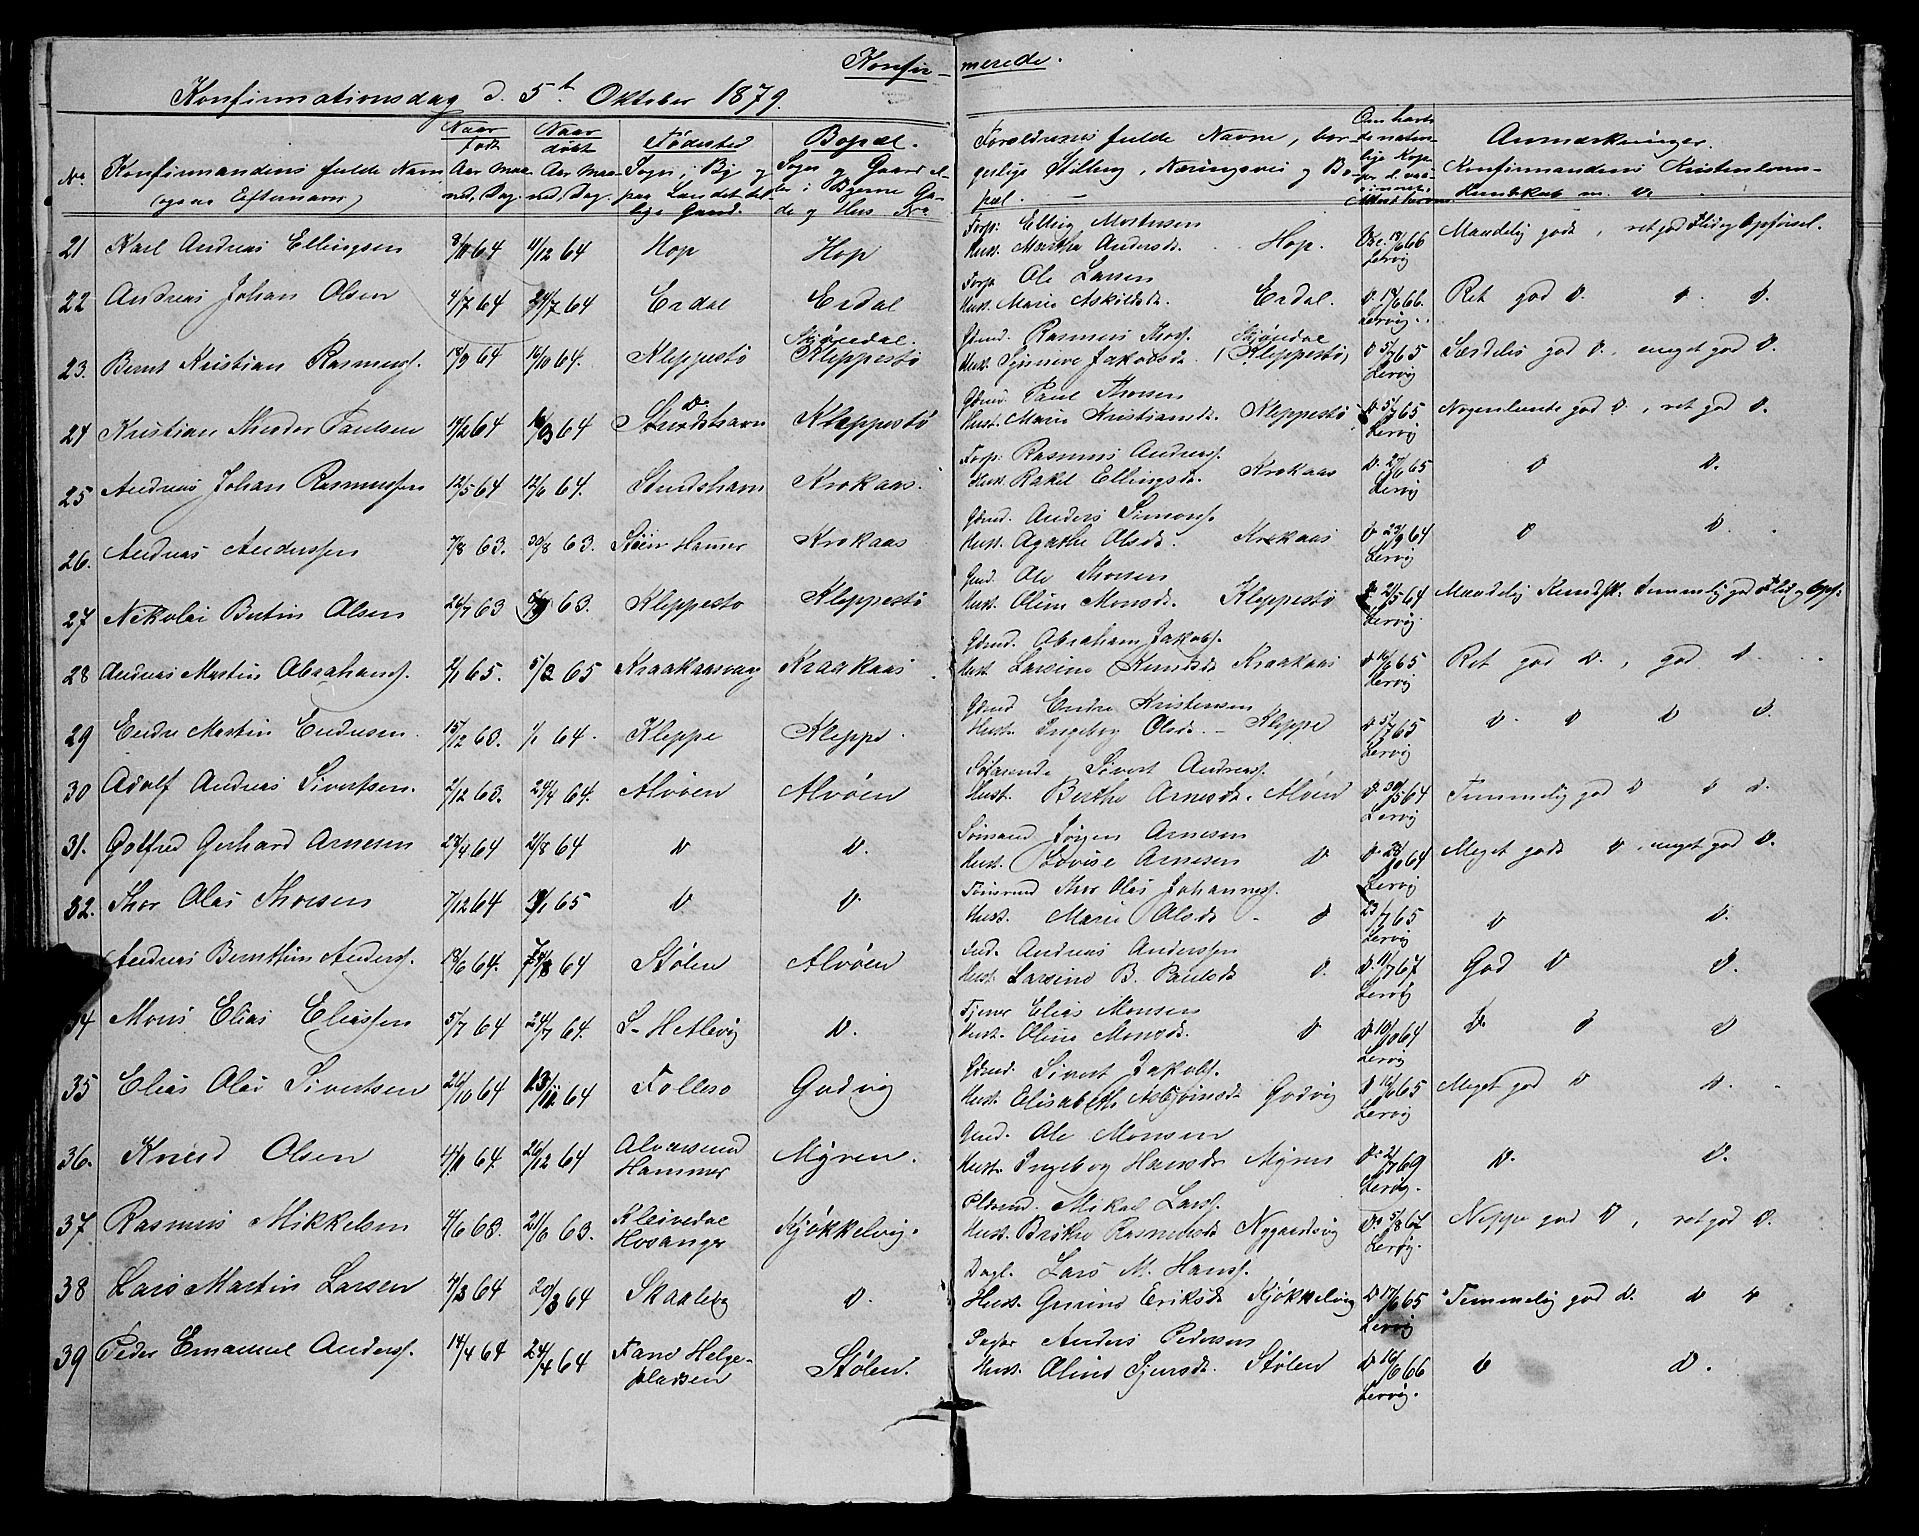 Konfir- merede.
Konfirmationsdag d. 5t Oktober 1879.
No. Konfirmandens fulde Navn (ogsaa Efternavn) Naar født Aar Maaned, Dag. Naar døbt Aar Maaned, Dag. Fødested Sogn, By og paa Landet tillige Gaard. Bopæl. Sogn og Gaard eller i Byerne Gade og Hus No Forældrenes fulde Navne, borgerlige Stilling, Næringsvei og Bopæl. Anmærkninger. Konfirmandens Kristendomskundskab m. v.
21 Karl Andreas Ellingsen 8/11 64 11/12 64 Hop Hop Forp: Elling Mortensen
Hust. Martha Andersd. Hop. 18/6 66 Lervig Maadelig godt, ret god Flid og Opførsel.
22 Andreas Johan Olsen 4/7 64 24/7 64 Erdal Erdal Forp Ole Larsen
Hust. Marie Askildsd. Erdal. D. 18/6 66. Lervig. Ret god D. D. D.
23. Bernt Kristian Rasmuss. 18/9 64 16/10 64. Kleppestø Skjøndal. Kleppestø Gdmd. Rasmus Thos.
Hust. Synneve Jakobsd. Skjøndal (Kleppestø) D 5/7 65 Lervig Særdeles god D., meget god D.
24 Kristian Theodor Paulsen 14/2 64 16/3 64 Strudshavn Kleppestø Gdmd. Paul Thorsen
Hust. Marie Kristiansd. Kleppestø D. 5/7 65 Lervig Nogenlunde god D., ret god D.
25 Andreas Johan Rasmussen 12/5 64 12/6 64. Strudshavn Krokaas. Forp: Rasmus Anderss.
Hust. Rakel Ellingsd. Krokaas D. 27/6 65 Lervig D D.
26. Andreas Anderssen 7/8 63. 30/8 63. Støin Hamer Krokaas Gdmd. Anders Simons.
Hust. Agathe Olsd. Krokaas D 29/9 64 Lervig D D.
27 Nikolai Bertin Olsen 26/7 63 63. Kleppestø Kleppestø Gmd. Ole Thorsen
Hust. Oline Monsd. Kleppestø 21/5 64 Lervig. Maadelig Kundsk. Temmelig god Flid og Opf.
28 Andreas Martin Abrahams. 2/1 65. 5/2 65 Kraakaasvaag Kraakaas Gdmd. Abraham Jakobs.
Hust. Larsine Knudsd. Kraakaas D 16/6 65 Lervig Ret god D., god D.
29 Endre Martin Endresen. 15/12 63. 1/1 64. Kleppe Kleppe. Gdmd Endre Kristensen
Hust. Ingeborg Olsd. - Kleppe D 5/7 65 Lervig D. D D D.
30 Adolf Andreas Sivertsen. 2/12 63. 24/4 64. Alvøen Alvøen Søfarende Sivert Andreas.
Hust. Berthe Arnesd. Alvøen D. 30/5 64 Lervig Temmelig god D D D.
31. Gotfred Gerhard Arnesen 28/4 64 21/8 64 D D. Sømand Jørgen Arnesen
Hust. Lovise Arnesen D D. 64 Lervig Meget godt D, meget god D.
32. Thor Olai Thorsen 7/12 64 65 D D. Thor Olai Johanness.
Hust. Marie Olsd. - D 23/7 65 Lervig D D.
Andreas Bernthin Anders. 18/6 64. 64 Stølen Alvøen Ind. Andreas Anderssen
Hust. Larsine B. Paulsd D. D. 11/7 67 Lervig God D D.
34 Mons Elias Eliassen 5/7 64 24/7 64. S- Hetlevig D. Tjener Elias Monsen
Hust. Oline Monsd. D D. 10/10 64 Lervig D. D D
35 Elias Olai Sivertsen 26/10 64 13/11 64 Follesø Godvig Gdmd. Sivert Jakobs.
Hust. Elisabeth Asbjørnsd Godvig D 16/6 65 Lervig Meget god D D.
36. Knud Olsen 4/11 64. 26/12 64 Alversund Hammer Myren. Gmd. Ole Monsen
Hust. Ingeborg Hansd. Myren D. 2/7 69 Lervig. D. D.
37. Rasmus Mikkelsen 4/6 63. 21/6 63. Kleivedal Hosanger Kjøkkelvig. Mikal Larss.
Hust. Brithe Rasmusd Nygaardsvig D. 5/8 67 Lervig. Neppe god D, ret god D.
38 Lars Martin Larsen 4/3 64 20/3 64 Skaalevig D. Dagl. Lars M. Hanss.
Hust. Gurine Eriksd. Kjøkkelvig D 17/6 65 Lervig Temmelig god D. D D
39 Peder Emanuel Anders. 14/4 64 24/4 64 Fane Helgepladsen Stølen. Anders Pedersen
Hust. Oline Sjursd. Stølen D 16/6 66 Lervig. D D.